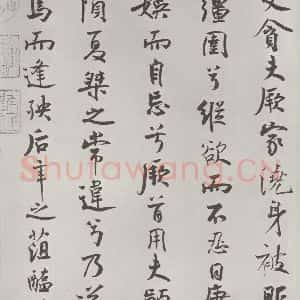 又貪夫厥家澆身被服
彊圉兮縱欲而不忍日康
娛而自忘兮厥首用夫顛
隕夏桀之常違兮乃遂
焉而逢殃后辛之菹醢
Shufawang.CN